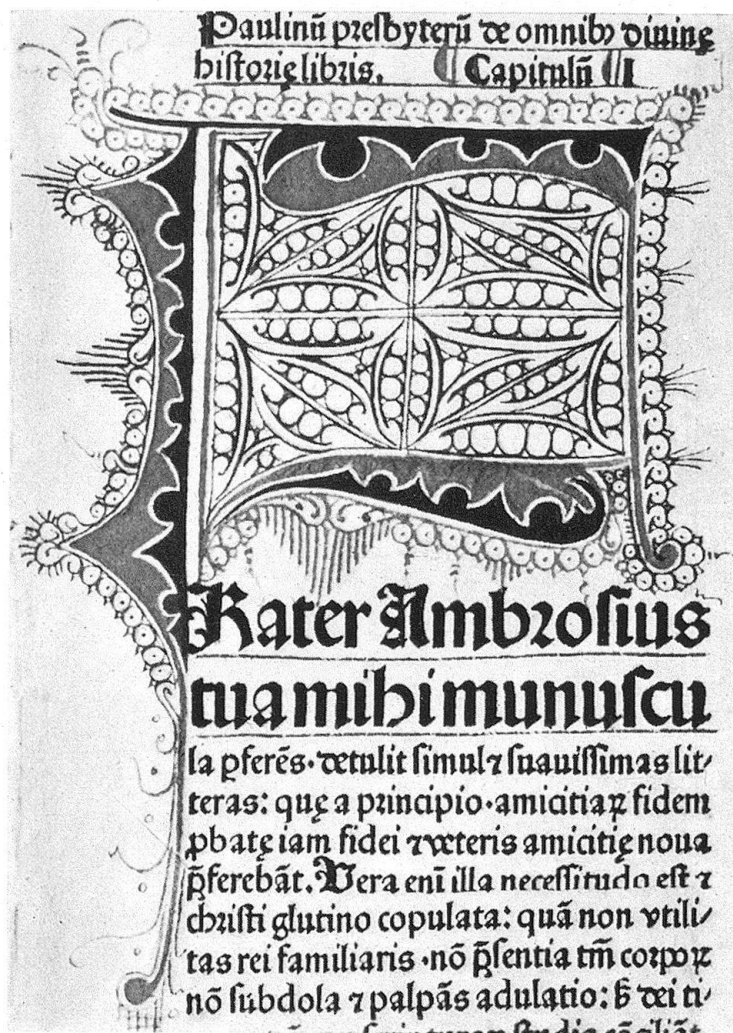 Paulinū presbyterū de omnibꝫ diuinę
historię libris. Capitulū I
FRater Ambrosius
tua mihi munuscu
la ꝑferēs·detulit simul ⁊ suauissimas lit⸗
teras: quę a principio·amicitiaꝝ fidem
ꝓbatę iam fidei ⁊ veteris amicitię noua
p̄ferebāt. Vera eni illa necessitudo est ⁊
christi glutino copulata: quā non vtili⸗
tas rei familiaris·nō p̄sentia tm̄ corpoꝝ
nō subdola ⁊ palpās adulatio: s̄ dei ti⸗